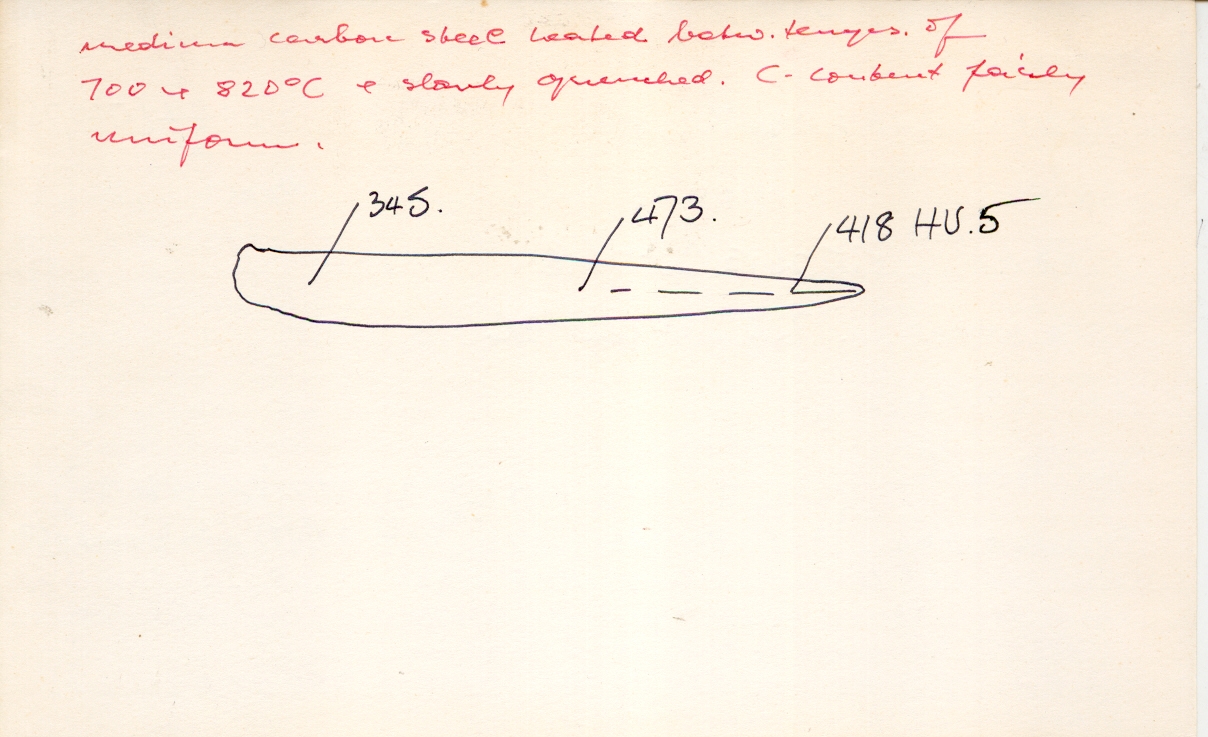 medium carbon steel heated betw. temps. of
700 & 820°C & slowly quenched. C-content fairly
uniform.
345. 473. 418 HV.5